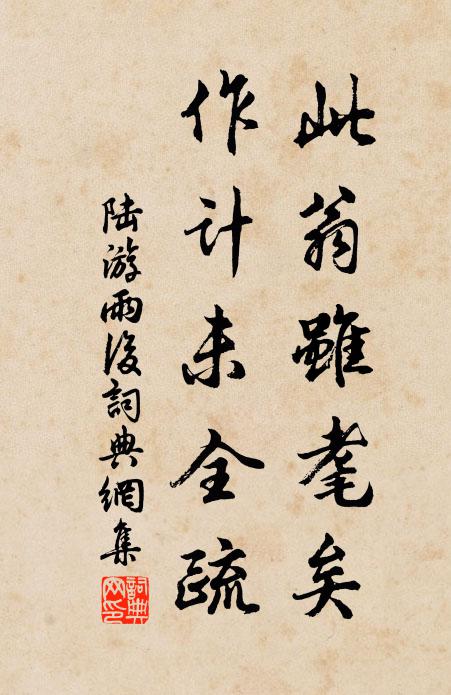 此翁雖耄矣
作計未全疏
陸游雨後詞典網集
詞典網印